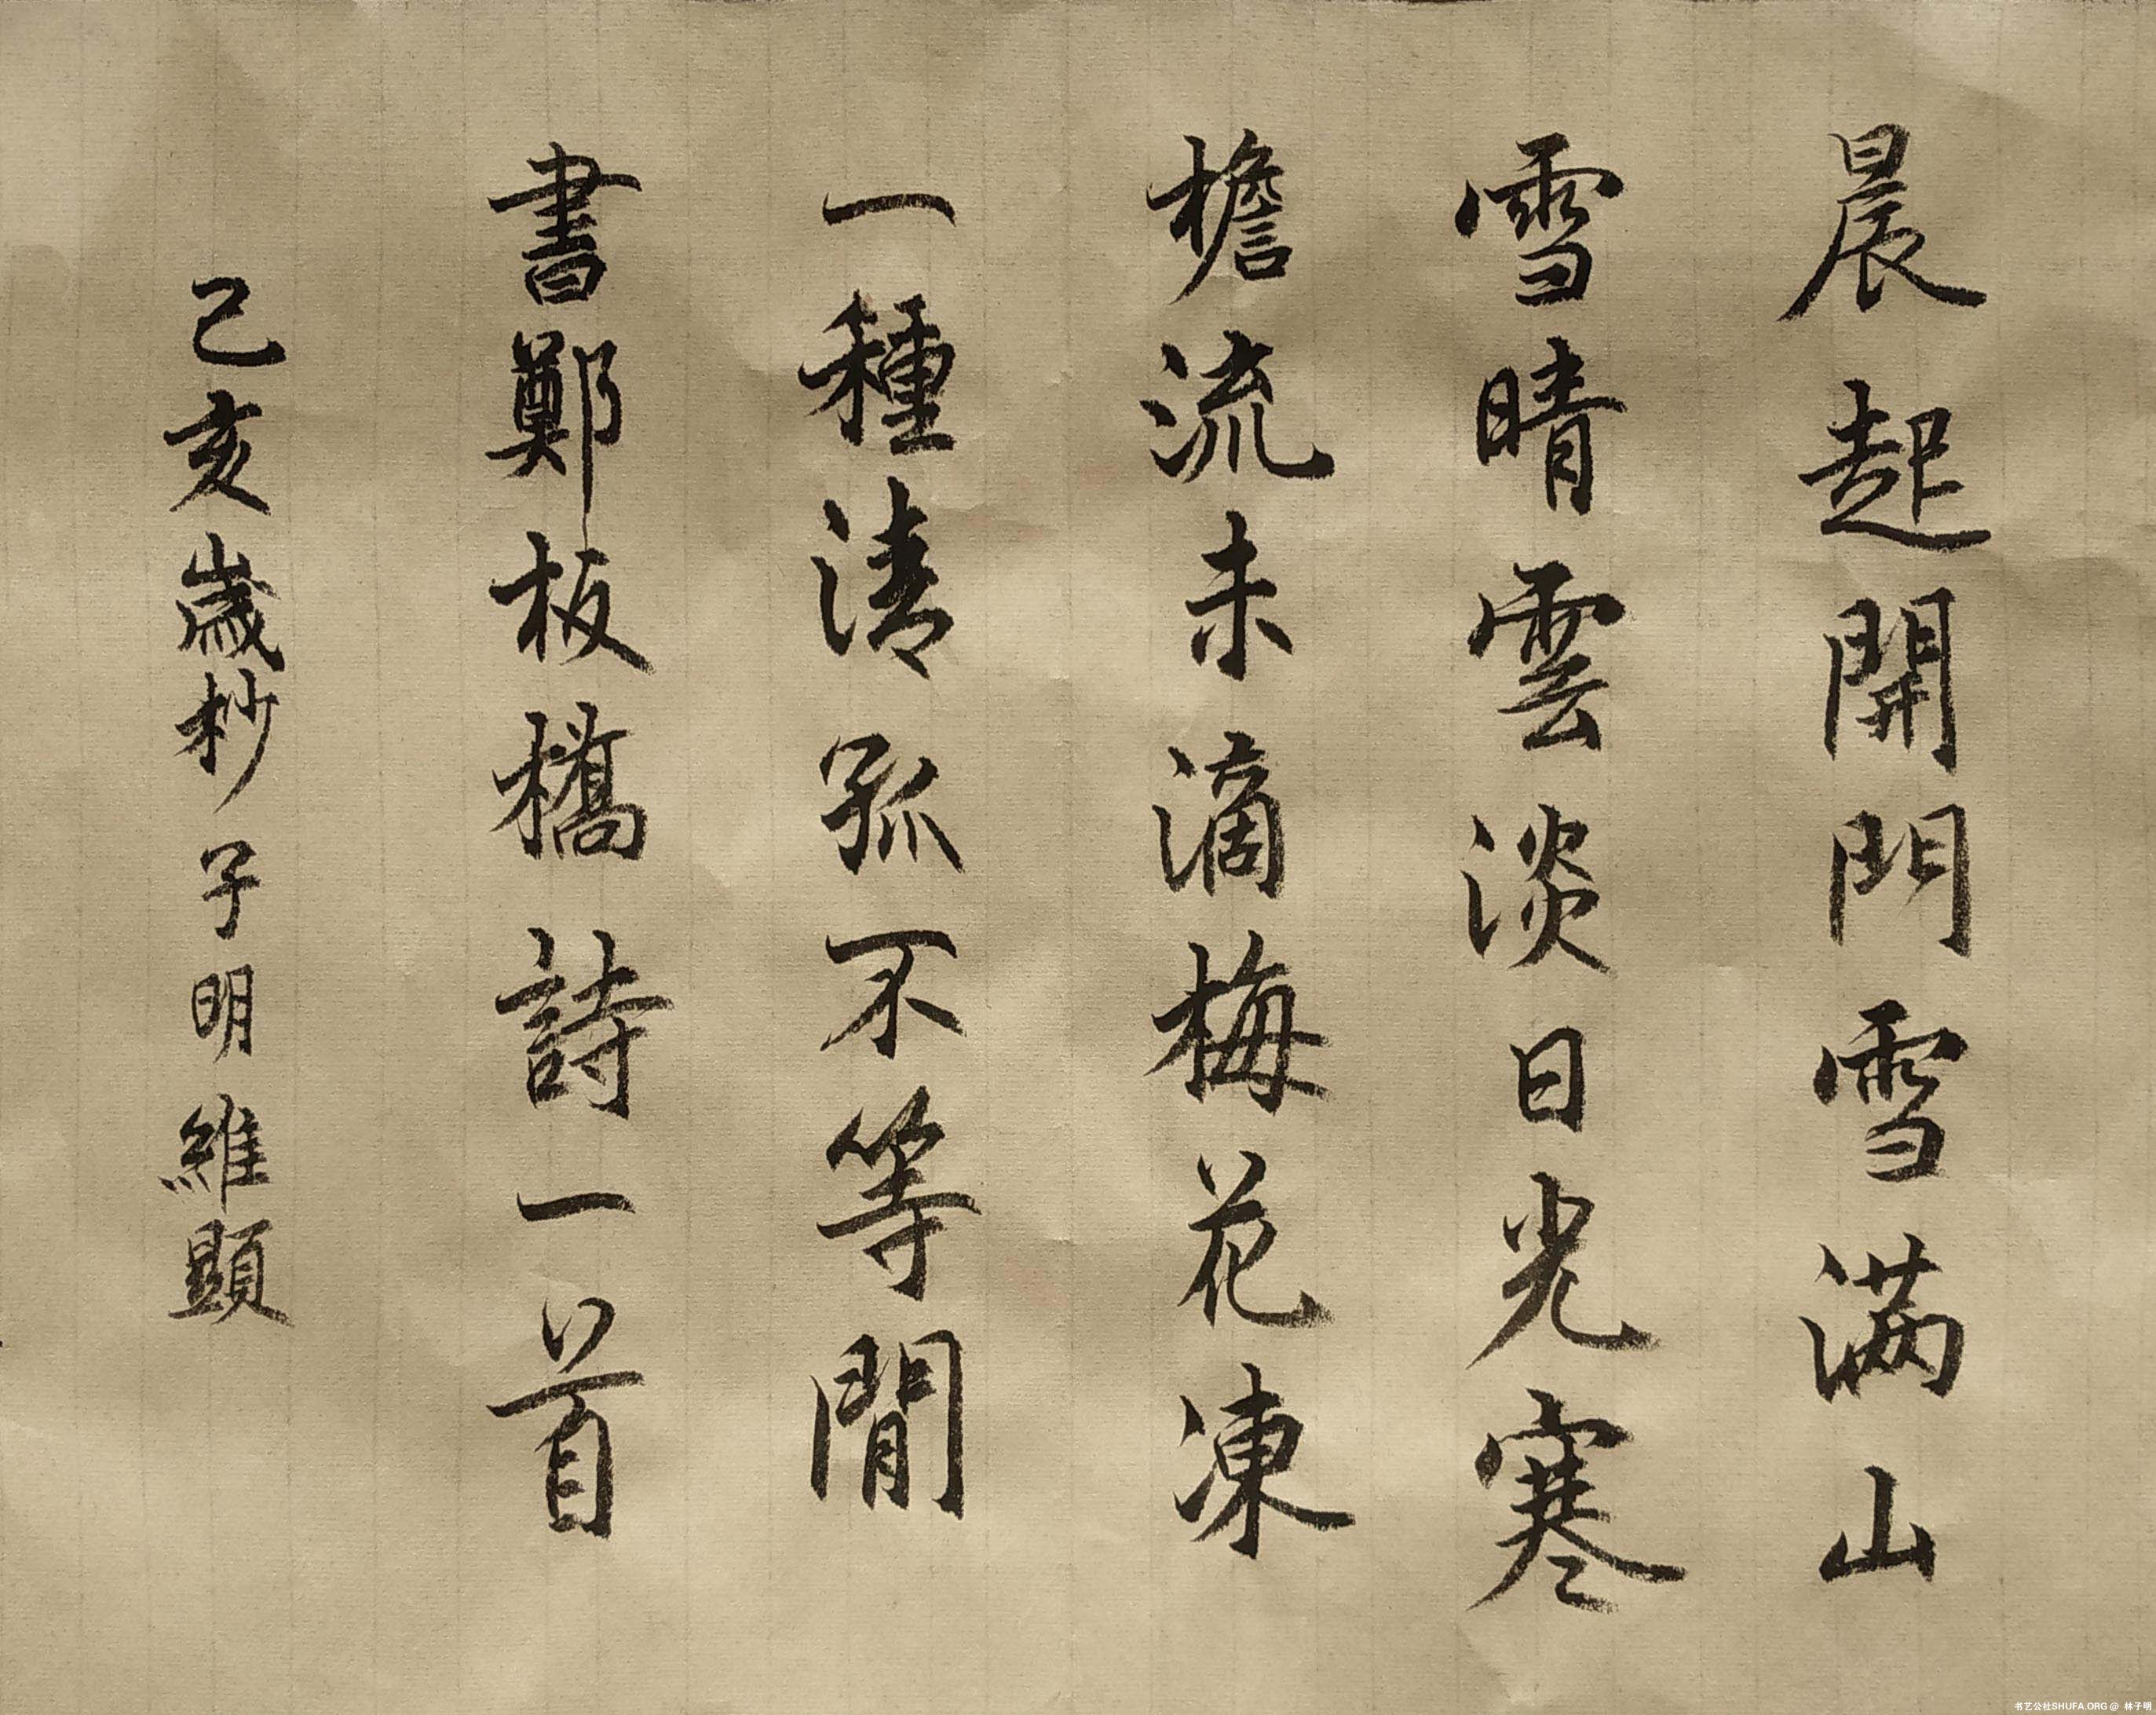 晨起開門雪满山
雪晴雲淡日光寒
檐流未滴梅花凍
一種清孤不等閒
書鄭板橋詩一首
己亥歲杪子明維顯
书艺公社SHUFA.ORG @ 林子明